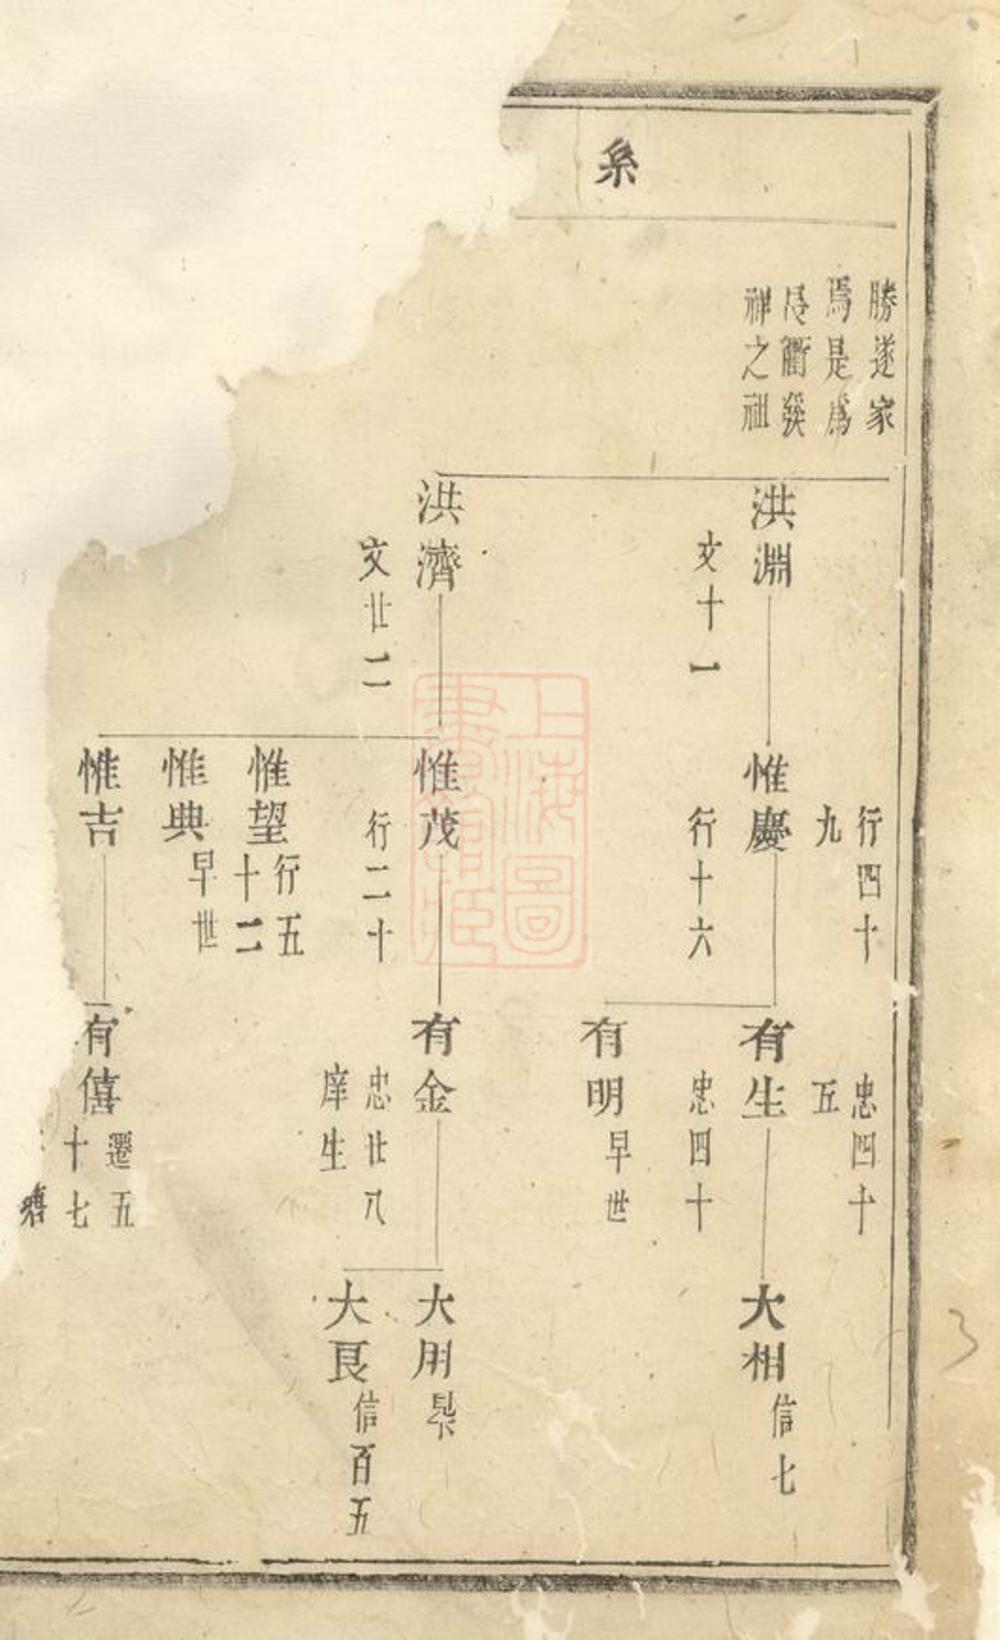 系
勝遂家
焉是爲
衢
神之祖
洪淵
文十一
洪濟
文廿二
行四十
九
惟慶
行十六
惟茂
行二十
惟望
行五
十二
惟典
早世
惟吉
忠四十
五
有生
忠四十
有明
早世
有金
忠廿八
庠生
有僖
遷五
十七
大相
信七
大用
大良
信百五
上海圖
書館藏